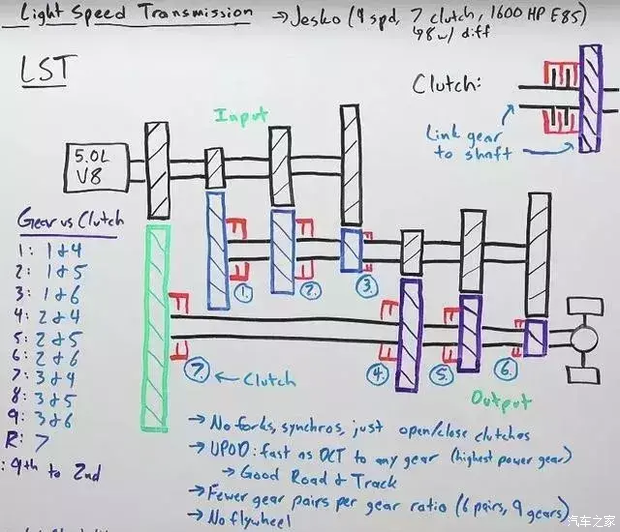 Light Speed Transmission → Jesko (9 spd, 7 clutch, 1600 HP E85)
98 w/ diff
LST
Clutch:
Link gear
to shaft
Input
5.0L
V8
Gear vs Clutch
1: 1&4
2: 1&5
3: 1&6
4: 2&4
5: 2&5
6: 2&6
7: 3&4
8: 3&5
9: 3&6
R: 7
: 9th to 2nd
1.
2.
3.
7.
← Clutch
4.
5.
6.
Output
→ No forks, synchros, just open/close clutches
→ UPOD: fast as DCT to any gear (highest power gear)
→ Good Road & Track
→ Fewer gear pairs per gear ratio (6 pairs, 9 gears)
→ No flywheel
汽车之家